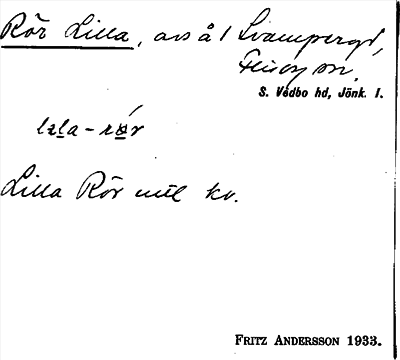 Rör Lilla, avs å 1 Svampergd,
Flisby sn.
S. Vedbo hd, Jönk. l.
lɩla-rór
Lilla Rör mil kv.
FRITZ ANDERSSON 1933.